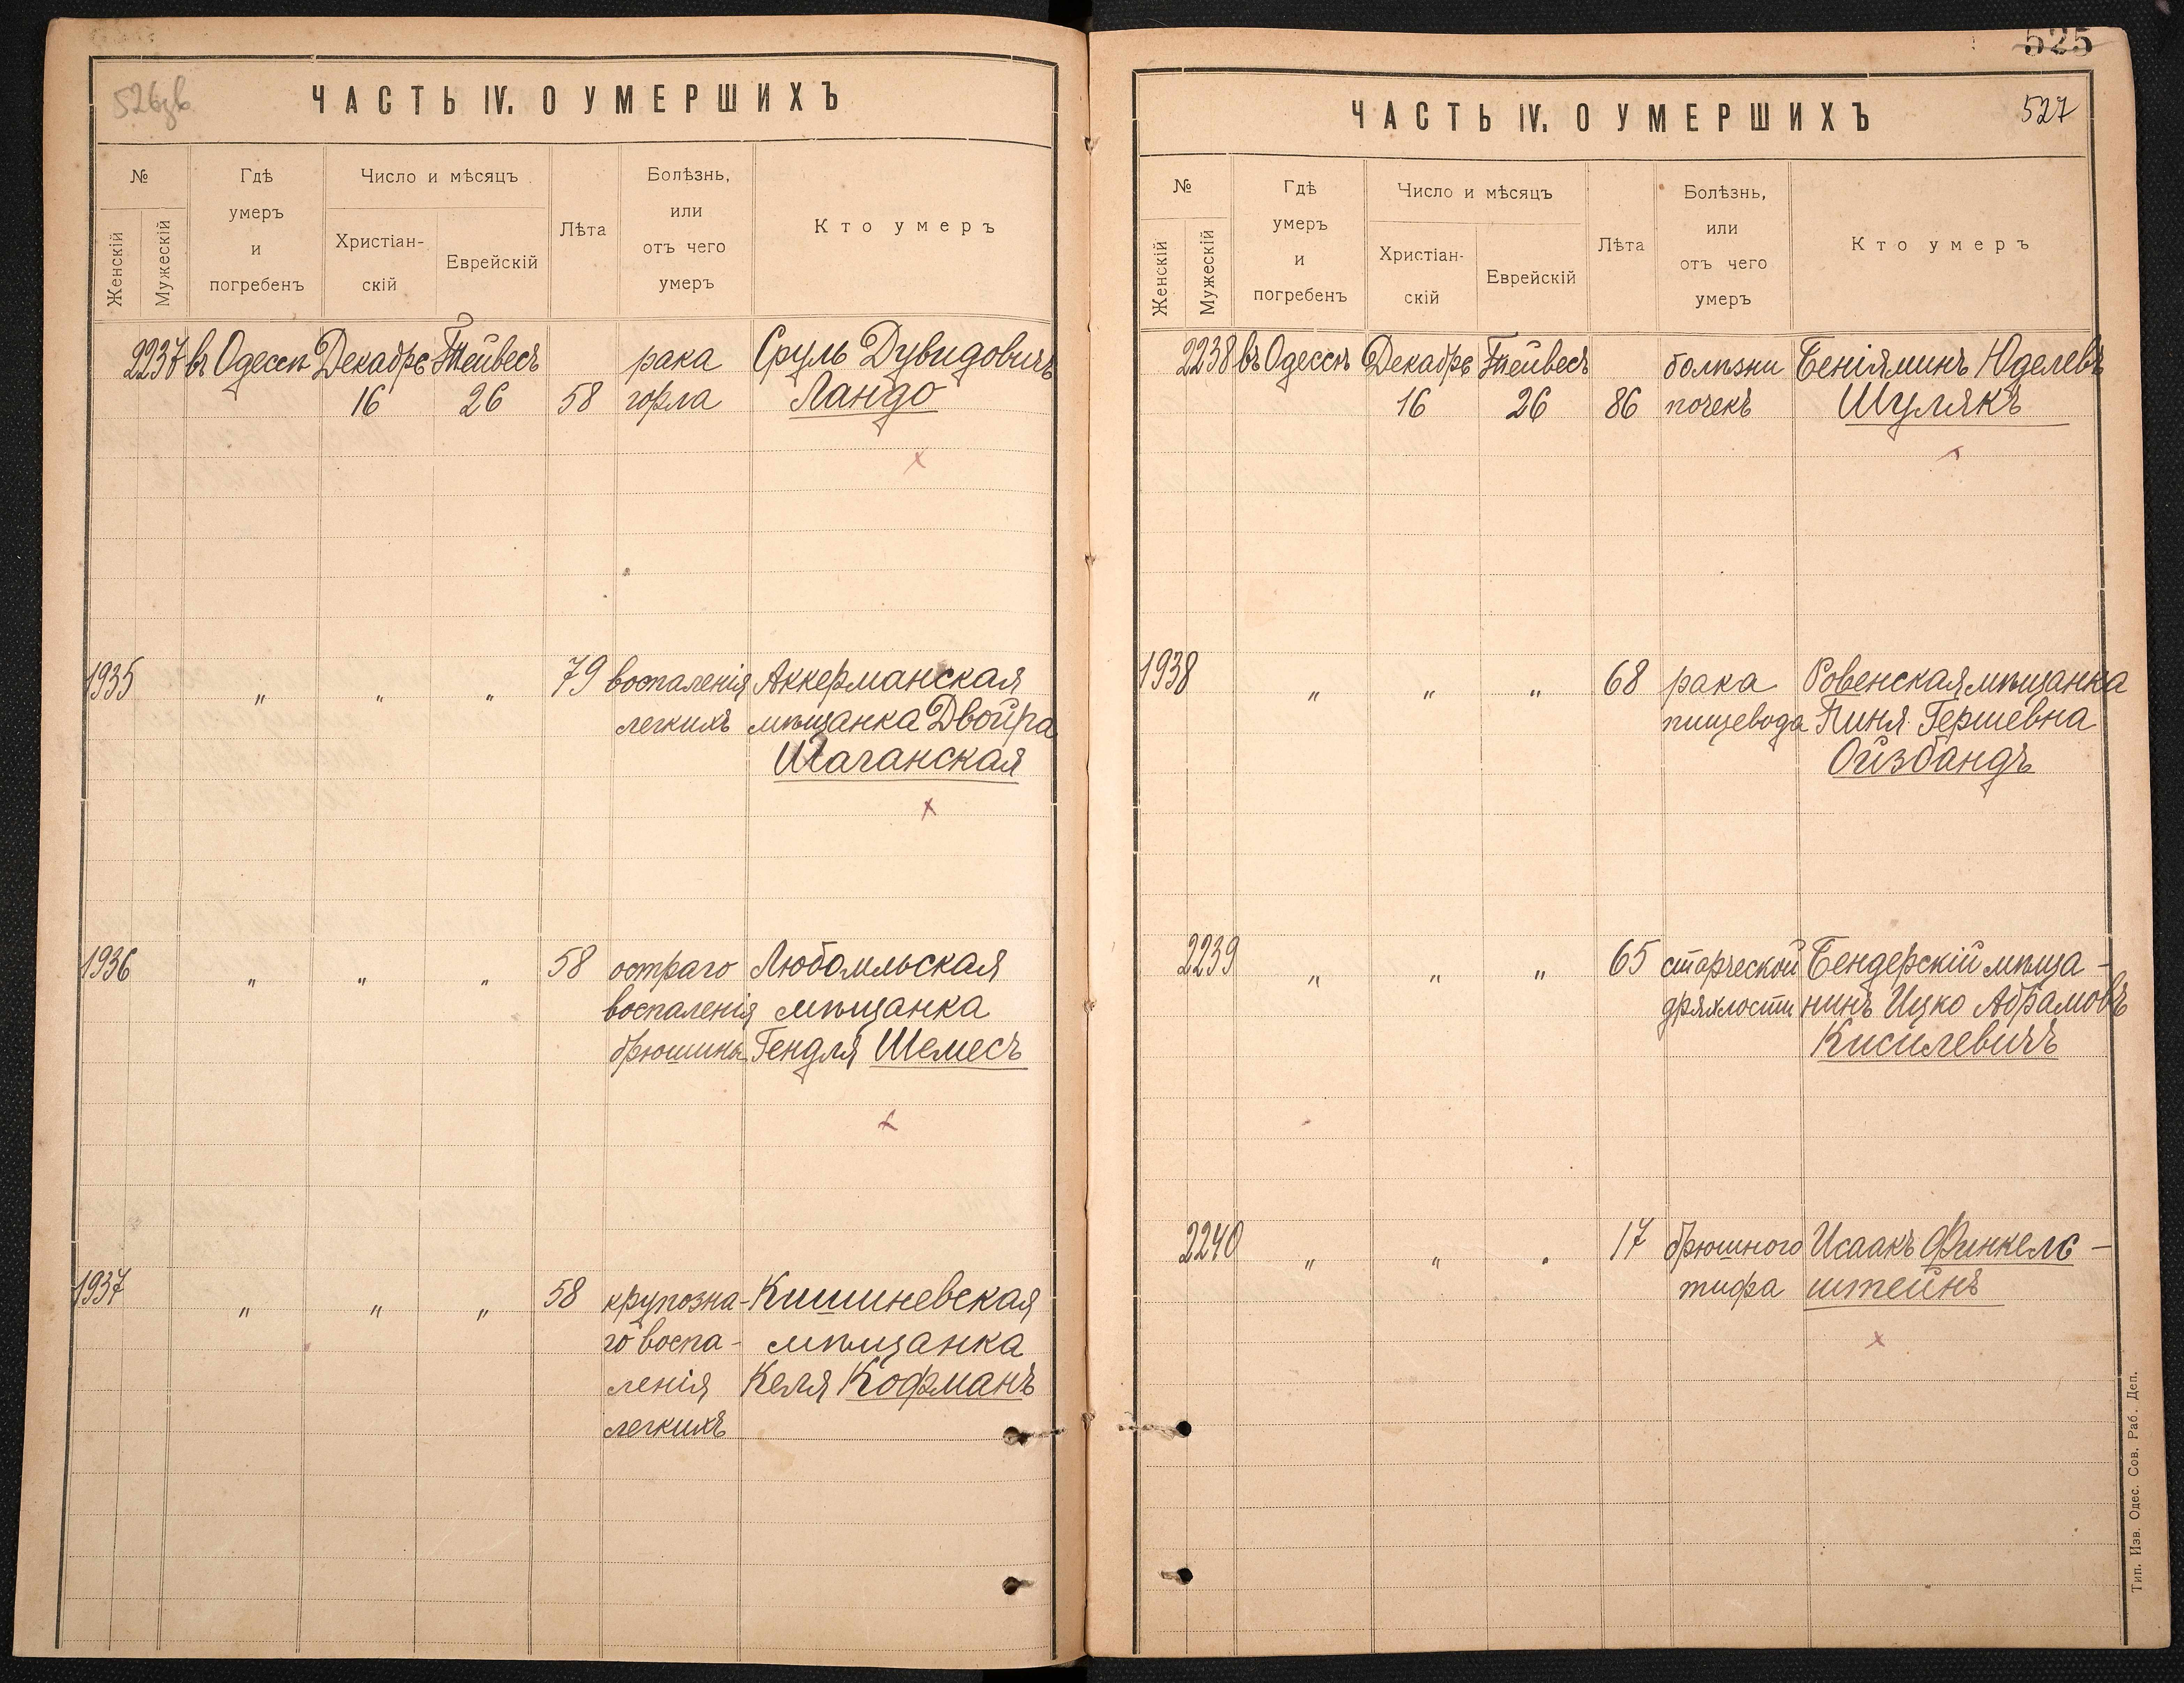 526 зв
ЧАСТЬ IV. О УМЕРШИХЪ
№
Гдѣ умеръ и погребенъ
Число и мѣсяцъ
Лѣта
Болѣзнь, или отъ чего умеръ
Кто умеръ
Женскій
Мужескій
Христіан-
скій
Еврейскій
2237 въ Одессѣ Декабрѣ Тейвесъ рака Сруль Дувидовичъ
16 26 58 горла Ландо
1935 " " " 79 воспаленія Аккерманская
легкихъ мѣщанка Двойра
Шаганская
1936 " " " 58 остраго Любомльская
воспаленія мѣщанка
брюшины Гендля Шемесъ
1937 " " " 58 крупозна- Кишиневская
го воспа- мѣщанка
ленія Келя Кофманъ
легкихъ
525
527
ЧАСТЬ IV. О УМЕРШИХЪ
№
Гдѣ умеръ и погребенъ
Число и мѣсяцъ
Лѣта
Болѣзнь, или отъ чего умеръ
Кто умеръ
Женскій
Мужескій
Христіан-
скій
Еврейскій
2238 въ Одессѣ Декабрѣ Тейвесъ болѣзни Беніяминъ Юделевъ
16 26 86 почекъ Шулякъ
1938 " " " 68 рака Ровенская мѣщанка
пищевода Пиня Гершевна
Ойзбандъ
2239 " " " 65 старческой Бендерскій мѣща-
дряхлости нинъ Ицко Абрамовъ
Кисилевичъ
2240 " " " 17 брюшного Исаакъ Финкель-
тифа штейнъ
Тип. Изв. Одес. Сов. Раб. Деп.